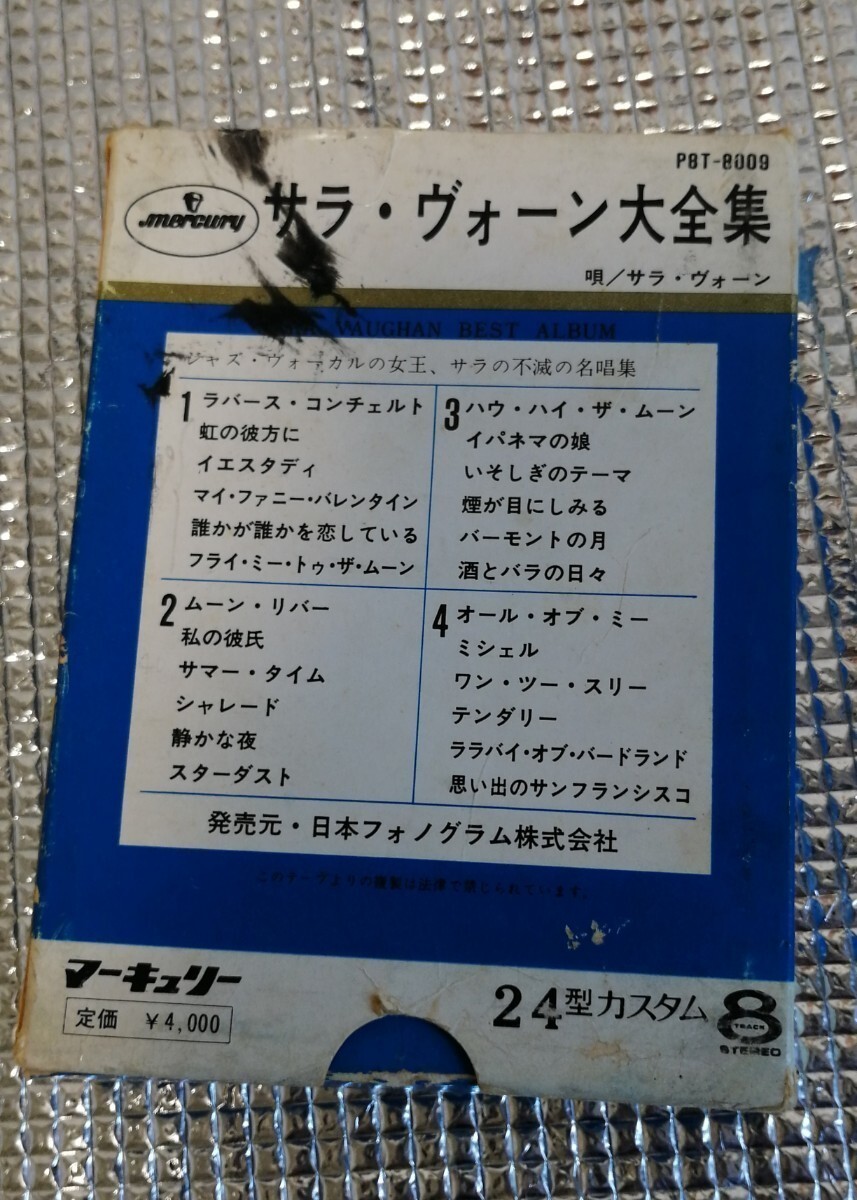 P8T-8009
mercury
サラ・ヴォーン大全集
唄/サラ・ヴォーン
VAUGHAN BEST ALBUM
ジャズ・ヴォーカルの女王、サラの不滅の名唱集
1 ラバース・コンチェルト
虹の彼方に
イエスタディ
マイ・ファニー・バレンタイン
誰かが誰かを恋している
フライ・ミー・トゥ・ザ・ムーン
2 ムーン・リバー
私の彼氏
サマー・タイム
シャレード
静かな夜
スターダスト
3 ハウ・ハイ・ザ・ムーン
イパネマの娘
いそしぎのテーマ
煙が目にしみる
バーモントの月
酒とバラの日々
4 オール・オブ・ミー
ミシェル
ワン・ツー・スリー
テンダリー
ララバイ・オブ・バードランド
思い出のサンフランシスコ
発売元・日本フォノグラム株式会社
このテープよりの複製は法律で禁じられています。
マーキュリー
定価 ¥4,000
24型カスタム
8
TRACK
STEREO